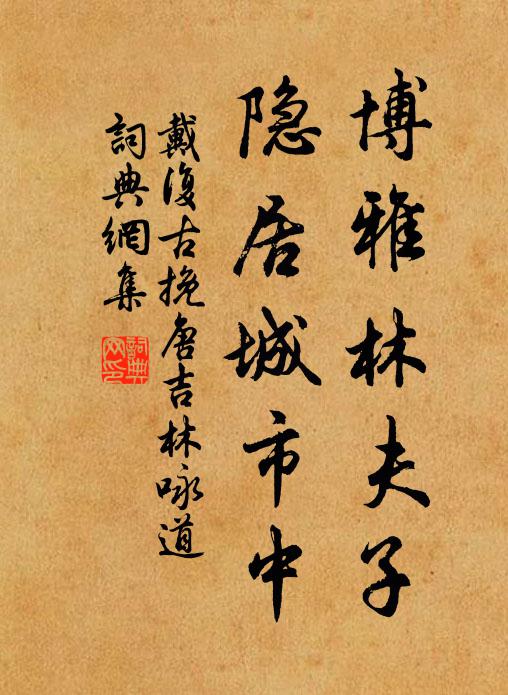 博雅林夫子
隐居城市中
戴復古挽唐吉林咏道
詞典網集
詞典网印